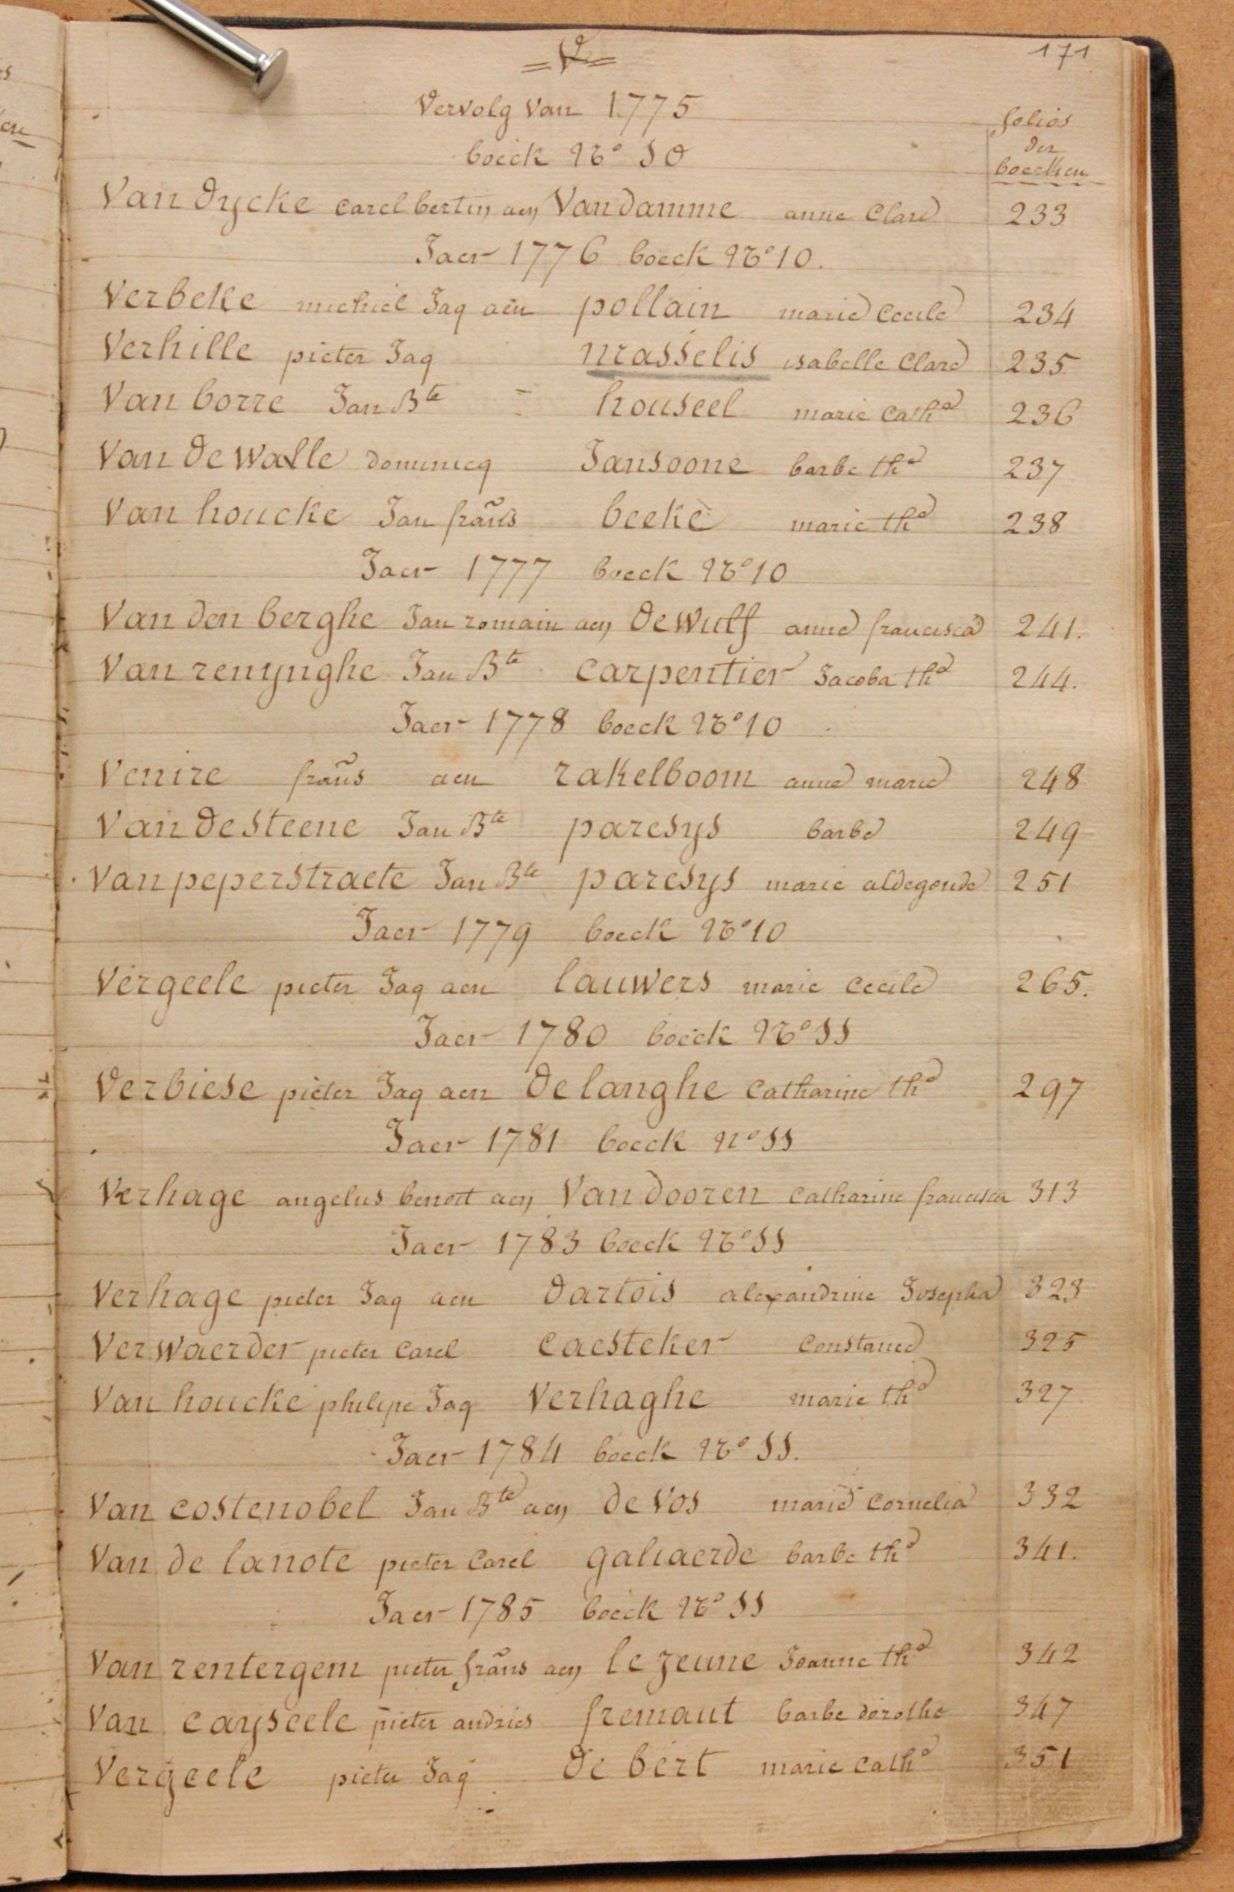 =V=
171
Vervolg van 1775
folios
der
boecken
boeck No 10
Van Dycke carel bertin aen Van damme anne Clare 233
Jaer 1776 boeck No 10.
Verbeke michiel Jaq aen pollain marie Cecile 234
Verhille pieter Jaq masselis isabelle Clare 235
Van borre Jan Bte - houseel marie Cathe 236
Van de walle dominicq Jansoone barbe the 237
Van houcke Jan frañs beeke marie the 238
Jaer 1777 boeck No 10
Van den berghe Jan romain aen De Wulf anne francisca 241.
Van renynghe Jan Bte carpentier Jacoba the 244.
Jaer 1778 boeck No 10
Venire frañs aen rakelboom anne marie 248
Van de steene Jan Bte paresys barbe 249
Van peperstraete Jan Bte paresys marie aldegonde 251
Jaer 1779 boeck No 10
Vergeele pieter Jaq aen lauwers marie Cecile 265.
Jaer 1780 boeck No 11
Verbiese pieter Jaq aen De langhe Catharine the 297
Jaer 1781 boeck no 11
Verhage angelus benoit aen Van dooren Catharine francisca 313
Jaer 1783 boeck No 11
Verhage pieter Jaq aen dartois alexandrine Josepha 323
Verwaerder pieter Carel caesteker Constance 325
Van houcke philipe Jaq Verhaghe marie the 327
Jaer 1784 boeck No 11.
Van costenobel Jan Bte aen de Vos marie Cornelia 332
Van de lanote pieter Carel galiaerde barbe the 341.
Jaer 1785 boeck No 11
Van rentergem pieter frañs aen le jeune Joanne the 342
Van cayseele pieter andries fremaut barbe dorothe 347
Vergeele pieter Jaq de bert marie Cathe 351